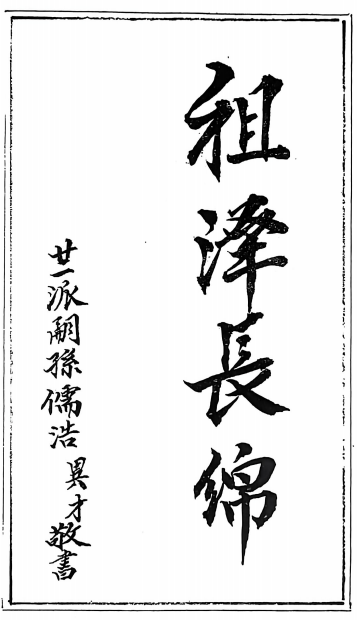 祖泽長綿
廿一派嗣孫儒浩異才敬書